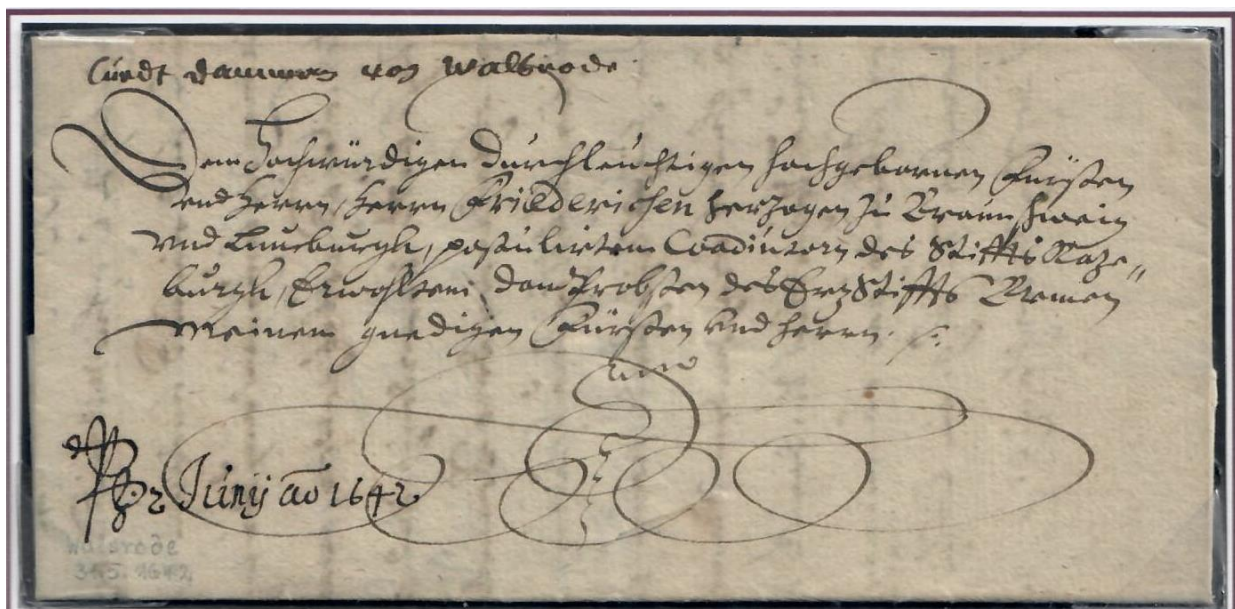 Curdt Damman von Walsrode.
Dem Hochwürdigen Durchleuchtigen Hochgebornen Fürsten
und Herrn, Herrn Friederichen Herzogen zu Braunschweig
und Luneburgh, postulirtem Coadiutorn des Stiffts Raze„
burgk, Erwohltem Dom Probsten des ErzStiffts Bremen
Meinem gnedigen Fürsten und Herrn.
2 Junij ao 1642
Walsrode
31.5.1642